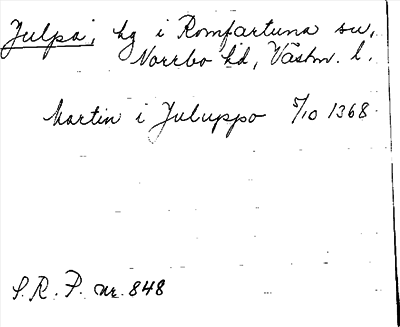 Julpa, hg i Romfartuna sn,
Norrbo hd, Västm. l.
Martin i Juluppo 5/10 1368.
S.R.P. nr. 848